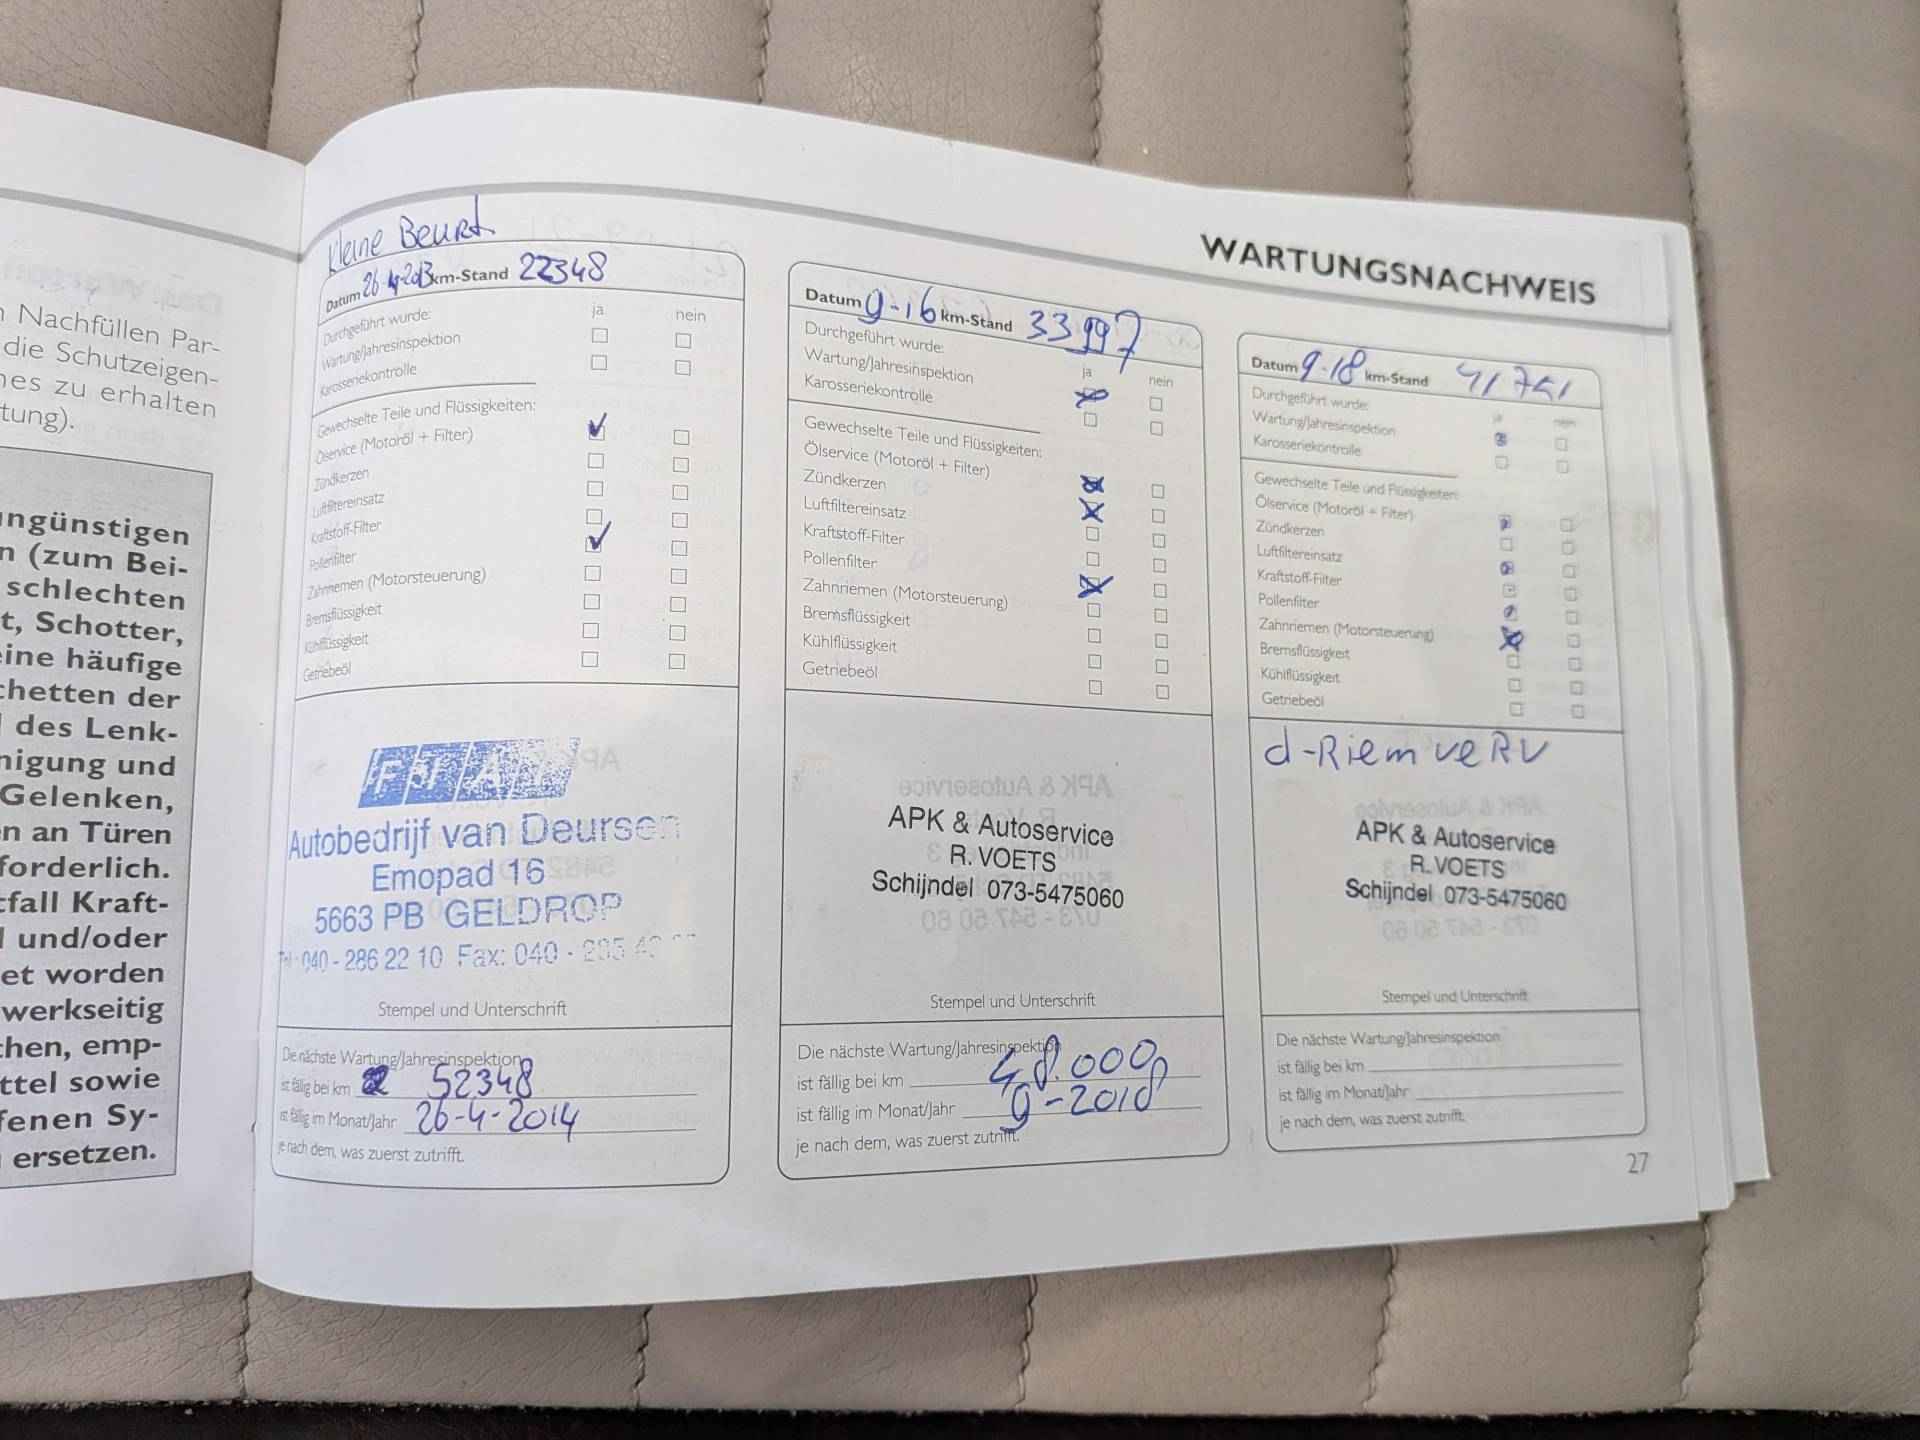 n Nachfüllen Par-
die Schutzeigen-
nes zu erhalten
tung).
ungünstigen
n (zum Bei-
schlechten
t, Schotter,
eine häufige
chetten der
des Lenk-
nigung und
Gelenken,
en an Türen
forderlich.
tfall Kraft-
l und/oder
et worden
werkseitig
chen, emp-
ttel sowie
fenen Sy-
ersetzen.
WARTUNGSNACHWEIS
Kleine Beurt
Datum 26-4-2013 km-Stand 22348
Durchgeführt wurde: ja nein
Wartung/Jahresinspektion
Karosseriekontrolle
Gewechselte Teile und Flüssigkeiten:
Ölservice (Motoröl + Filter)
Zündkerzen
Luftfiltereinsatz
Kraftstoff-Filter
Pollenfilter
Zahnriemen (Motorsteuerung)
Bremsflüssigkeit
Kühlflüssigkeit
Getriebeöl
Autobedrijf van Deursen
Emopad 16
5663 PB GELDROP
Tel: 040 - 286 22 10 Fax: 040 -
Stempel und Unterschrift
Die nächste Wartung/Jahresinspektion
ist fällig bei km 52348
ist fällig im Monat/Jahr 26-4-2014
je nach dem, was zuerst zutrifft.
Datum 9-16 km-Stand 33997
Durchgeführt wurde:
Wartung/Jahresinspektion ja nein
Karosseriekontrolle
Gewechselte Teile und Flüssigkeiten:
Ölservice (Motoröl + Filter)
Zündkerzen
Luftfiltereinsatz
Kraftstoff-Filter
Pollenfilter
Zahnriemen (Motorsteuerung)
Bremsflüssigkeit
Kühlflüssigkeit
Getriebeöl
APK & Autoservice
R. VOETS
Schijndel 073-5475060
Stempel und Unterschrift
Die nächste Wartung/Jahresinspektion
ist fällig bei km 48.000
ist fällig im Monat/Jahr 9-2018
je nach dem, was zuerst zutrifft.
Datum 9-18 km-Stand 41751
Durchgeführt wurde:
Wartung/Jahresinspektion ja nein
Karosseriekontrolle
Gewechselte Teile und Flüssigkeiten:
Ölservice (Motoröl + Filter)
Zündkerzen
Luftfiltereinsatz
Kraftstoff-Filter
Pollenfilter
Zahnriemen (Motorsteuerung)
Bremsflüssigkeit
Kühlflüssigkeit
Getriebeöl
d-Riem veRV
APK & Autoservice
R. VOETS
Schijndel 073-5475060
Stempel und Unterschrift
Die nächste Wartung/Jahresinspektion
ist fällig bei km
ist fällig im Monat/Jahr
je nach dem, was zuerst zutrifft.
27